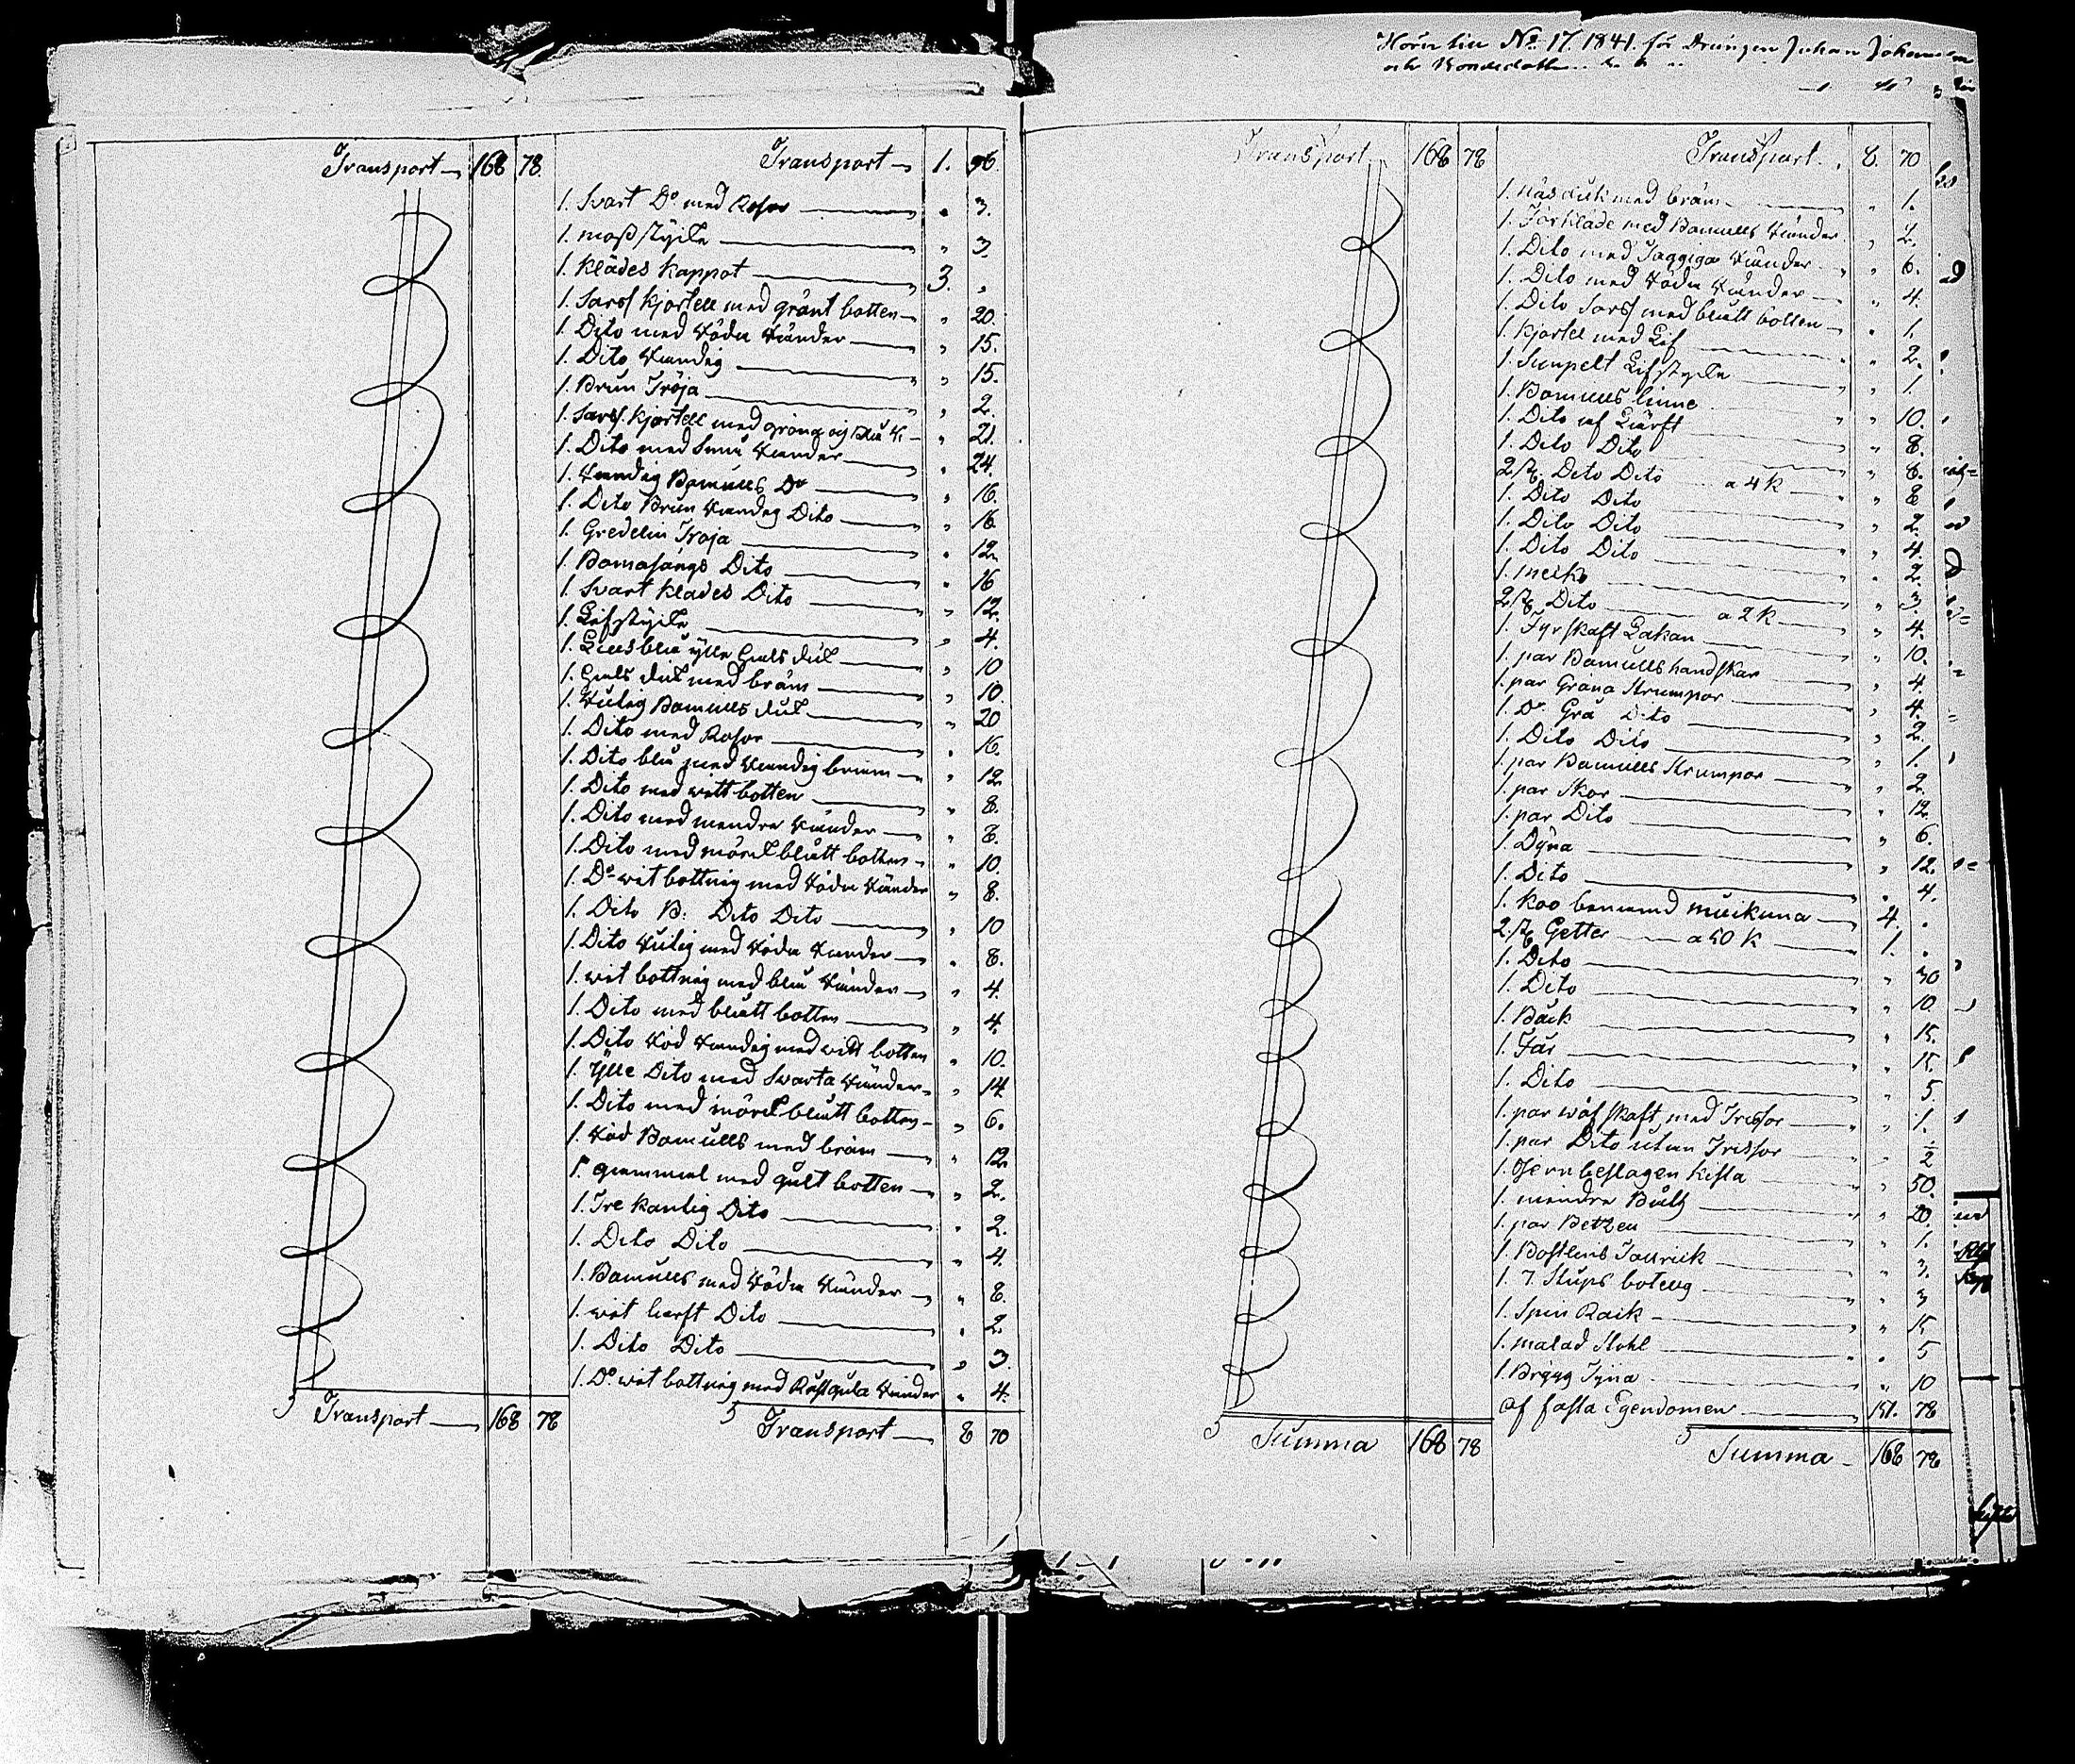 Transport 168 78
Transport 1. 96.
1. Svart Do med Rosor " 3.
1. moss stycke " 3.
1. klädes kappot 3. "
1. Sarss kjortell med grönt botten " 20.
1. Dito med röda ränder " 15.
1. Dito randig " 15.
1. Brun Tröja " 2.
1. Sarss kjortell med gröna og blå R. " 21.
1. Dito med Små ränder " 24.
1. randig Bomulls Do " 16.
1. Dito Brun randig Dito " 16
1. Gredelin Troja " 12
1. Bomasángs Dito " 16
1. Svart klades Dito " 12.
1. Lifstycke " 4.
1. Liusblå ylle hals duk " 10
1. hals duk med bräm " 10
1. rutig Bomulls duk " 20
1. Dito med Rosor " 16.
1. Dito blå med randig bräm " 12
1. Dito med witt botten " 8.
1. Dito med mendre ränder " 8.
1. Dito med mörckblått botten " 10.
1. Do wit bottnig med röda ränder " 8.
1. Dito B: Dito Dito " 10
1. Dito rutig med röda ränder " 8.
1. wit bottnig med blå ränder " 4.
1. Dito med blått botten " 4.
1. Dito röd randig med witt botten " 10.
1. ylle Dito med Svarta ränder " 14
1. Dito med mörckblått botten " 6.
1. röd Bomulls med bräm " 12
1. gammal med gult botten " 2.
1. Tre kantig Dito " 2.
1. Dito Dito " 4.
1. Bomulls med röda ränder " 8.
1. wit lärft Dito " 2
1. Dito Dito " 3.
1. Do wit bottnig med Rostgula ränder " 4.
Transport 168 78
Transport 8 70
No 17. 1841. för Drängen Johan
och
Transport 168 78
Transport 8. 70
1. Näs duk med bräm " 1.
1. Förkläde med Bomulls ränder " 2.
1. Dito med Taggiga ränder " 6.
1. Dito med röda ränder " 4.
1. Dito Sarss med blått botten " 1.
1. kjortel med Lif " 2.
1. Simpelt Lifstycke " 1.
1. Bomulls linne " 10.
1. Dito af Lärft " 8.
1. Dito Dito " 8.
2 st. Dito Dito a 4 k " 8
1. Dito Dito " 2
1. Dito Dito " 4.
1. Dito Dito " 2.
1. " 3.
2 st Dito a 2 k " 4.
1. Fyrskaft Lakan " 10.
1. par Bomulls handskar " 4.
1. par Gröna Strumpor " 4.
1. Do Grå Dito " 2.
1. Dito Dito " 1.
1. par Bomulls Strumpor " 2.
1. par Skor " 12.
1. par Dito " 6.
1. Dyna " 12.
1. Dito " 4.
1. koo benemnd 4. "
2 st Getter a 50 k 1. "
1. Dito " 30
1. Dito " 10
1. Bäck " 15.
1. Får " 15.
1. Dito " 5.
1. par wäf skaft med Trissor " 1.
1. par Dito utan Trissor " 1/2
1. Jern beslagen kista " 50.
1. mindre " 20.
1. par Betzel " 1.
1. " 3.
1. 7. Stups botelg " 3
1. Spin Råck " 15
1. malad Stohl " 5
1. Brygg Tyna " 10
af fasta Egendomen 151. 78
Summa 168 78
Summa 168 78